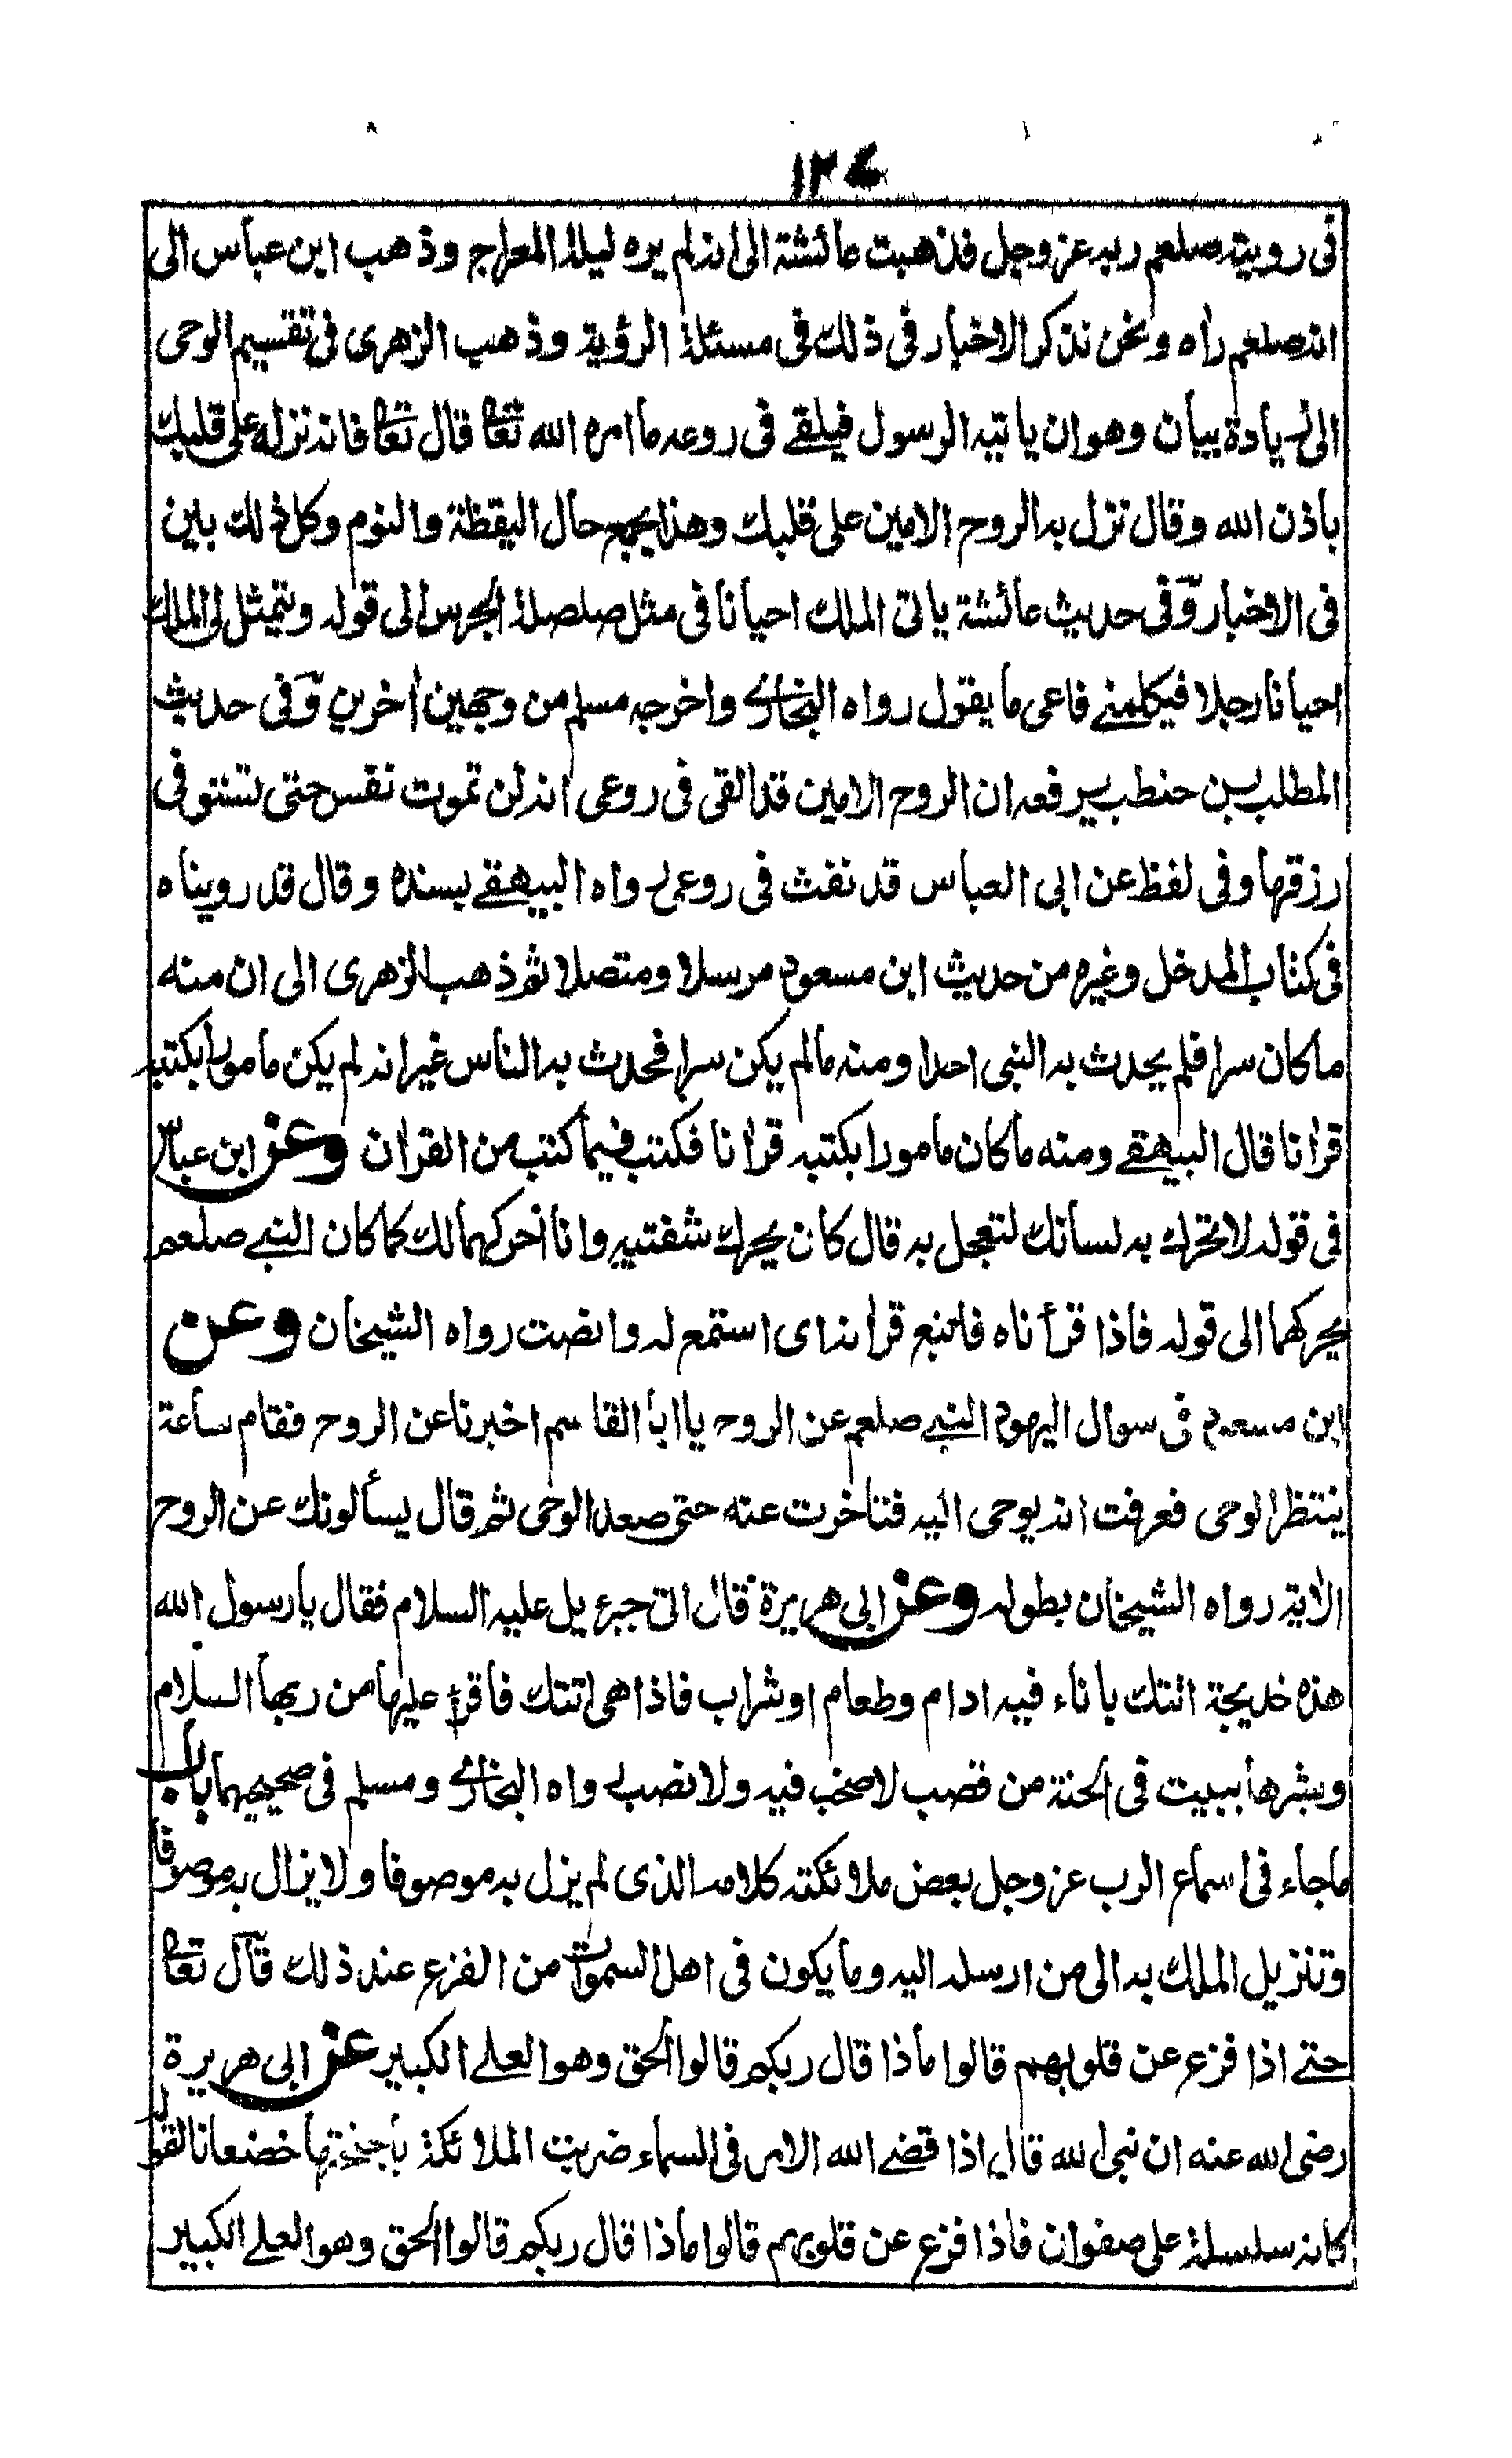 ١٢٤
فى رويته صلعم ربه عز وجل فذهبت عائشة الى انه لم يره ليلة المعراج وذهب ابن عباس الى
انه صلعم راٰه ونحن نذكر الاخبار فى ذلك فى مسئلة الرؤية وذهب الزهرى فى تقسيم الوحى
الى زيادة بيان وهو ان ياتيه الرسول فيلقے فى روعه ما امره الله تعالى قال تعالى فانه نزله على قلبك
باذن الله وقال نزل به الروح الامين على قلبك وهذا يجمع حال اليقظة والنوم وكل ذلك بين
فى الاخبار وفى حديث عائشة ياتى الملك احيانا فى مثل صلصلة الجرس الى قوله ويتمثل لى الملك
احيانا رجلا فيكلمنے فاعى ما يقول رواه البخارے واخرجه مسلم من وجهين اٰخرين وفى حديث
المطلب بن حنطب يرفعه ان الروح الامين قد القى فى روعى انه لن تموت نفس حتى تستوفى
رزقها وفى لفظ عن ابى العباس قد نفث فى روعى رواه البيهقے بسنده وقال قد رويناه
فى كتاب المدخل وغيره من حديث ابن مسعود مرسلا ومتصلا ثم ذهب الزهرى الى ان منه
ما كان سرا فلم يحدث به النبى احدا ومنه ما لم يكن سرا فحدث به الناس غير انه لم يكن مامورا بكتبه
قراٰنا قال البيهقے ومنه ما كان مامورا بكتبه قراٰنا فكتب فيما كتب من القراٰن وعن ابن عباس
فى قوله لا تحرك به لسانك لتعجل به قال كان يحرك شفتيه وانا احركهما لك كما كان النبے صلعم
يحركهما الى قوله فاذا قرأناه فاتبع قراٰنه اى استمع له وانصت رواه الشيخان وعن
ابن مسعود فى سوال اليهود النبے صلعم عن الروح يا ابا القاسم اخبرنا عن الروح فقام ساعة
ينتظر الوحى فعرفت انه يوحى اليه فتاخرت عنه حتى صعد الوحى ثم قال يسألونك عن الروح
الاٰية رواه الشيخان بطوله وعن ابى هريرة قال اتى جبرءيل عليه السلام فقال يا رسول الله
هذه خديجة اتتك باناء فيه ادام وطعام او شراب فاذا هى اتتك فاقرأ عليها من ربها السلام
وبشرها ببيت فى الجنة من قصب لا صخب فيه ولا نصب رواه البخارے ومسلم فى صحيحيهما باب
ماجاء فى اسماع الرب عز وجل بعض ملائكته كلامه الذى لم يزل به موصوفا ولا يزال به موصوفا
وتنزيل الملك به الى من ارسله اليه وما يكون فى اهل السموات من الفزع عند ذلك قال تعالى
حتے اذا فزع عن قلوبهم قالوا ماذا قال ربكم قالوا الحق وهو العلے الكبير عن ابى هريرة
رضى الله عنه ان نبى الله قال اذا قضے الله الامر فى السماء ضربت الملائكة باجنحتها خضعانا لقوله
كانه سلسلة على صفوان فاذا فزع عن قلوبهم قالوا ماذا قال ربكم قالوا الحق وهو العلے الكبير